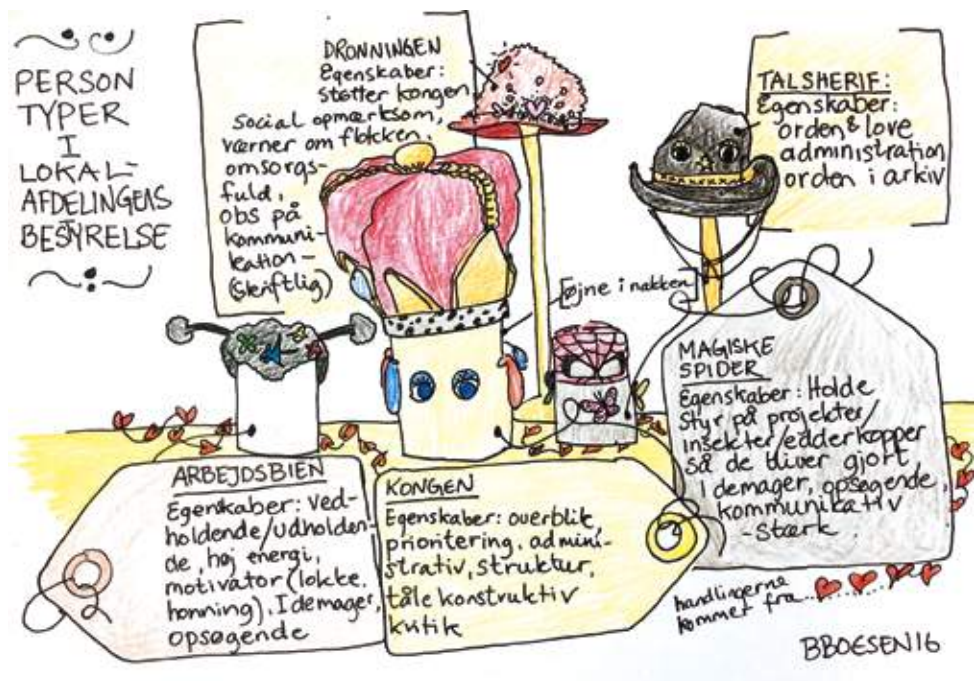 PERSON
TYPER
I
LOKAL-
AFDELINGENS
BESTYRELSE
DRONNINGEN
Egenskaber:
støtter kongen
Social opmærksom,
værner om flokken,
omsorgs-
fuld,
obs på
kommuni-
kation-
(skriftlig)
TALSHERIF:
Egenskaber:
orden & love
administration
orden i arkiv
øjne i nakken
MAGISKE
SPIDER
Egenskaber: Holde
styr på projekter/
insekter/edderkopper
så de bliver gjort
Idemager, opsøgende,
kommunikativ
-Stærk
ARBEJDSBIEN
Egenskaber: ved-
holdende/udholden-
de, høj energi,
motivator (lokke,
honning). Idemager,
opsøgende
KONGEN
Egenskaber: overblik,
prioritering, admini-
strativ, struktur,
tåle konstruktiv
kritik
handlingerne
kommer fra
BBOESEN16